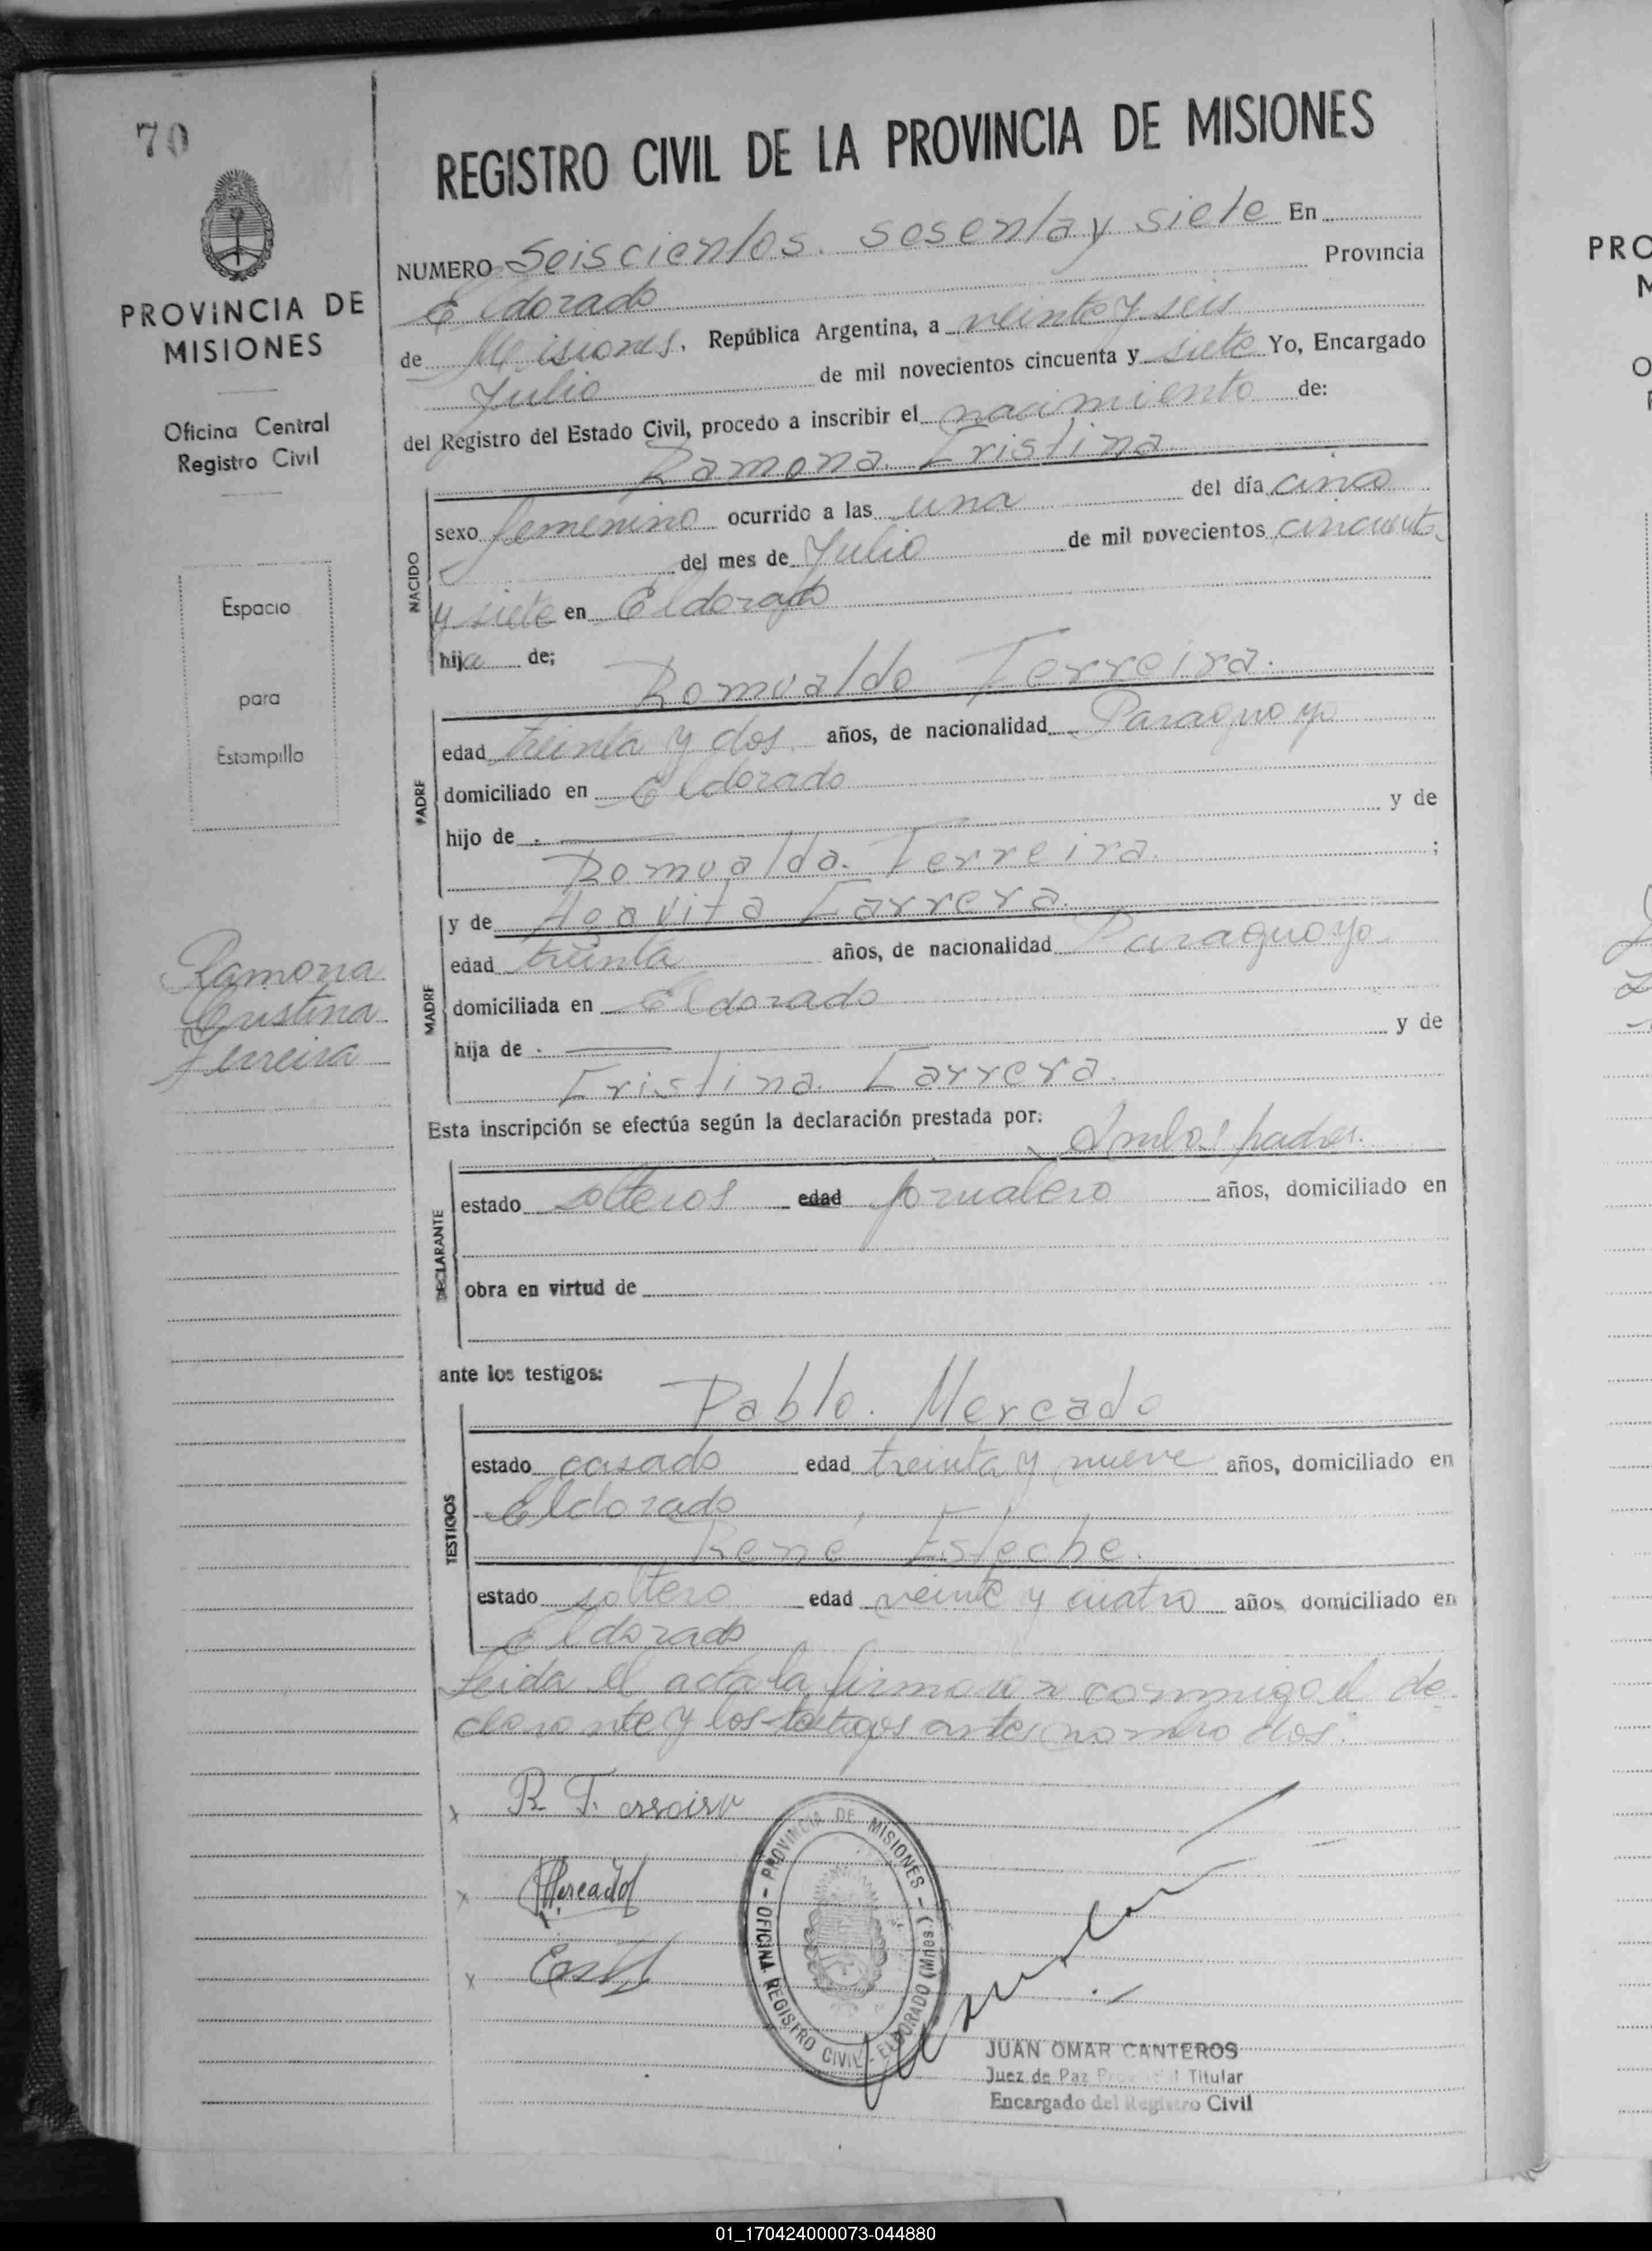 70
REGISTRO CIVIL DE LA PROVINCIA DE MISIONES
PROVINCIA DE
MISIONES
Oficina Central
Registro Civil
Espacio
para
Estampilla
NUMERO Seiscientos. sesenta y siete En
Eldorado Provincia
de Misiones, República Argentina, a veinte y seis
Julio de mil novecientos cincuenta y siete Yo, Encargado
del Registro del Estado Civil, procedo a inscribir el nacimiento de:
Ramona Cristina
NACIDO
sexo femenino ocurrido a las una del día cinco
del mes de Julio de mil novecientos cincuenta
y siete en Eldorado
hija de;
Romualdo Ferreira.
PADRE
edad treinta y dos años, de nacionalidad Paraguayo
domiciliado en Eldorado
hijo de y de
Romualda Ferreira. ;
y de Agavita Carrera.
MADRE
edad treinta años, de nacionalidad Paraguayo
domiciliada en Eldorado
hija de y de
Cristina Carrera.
Ramona
Cristina
Ferreira
Esta inscripción se efectúa según la declaración prestada por:
Ambos padres.
DECLARANTE
estado solteros edad jornalero años, domiciliado en
obra en virtud de
ante los testigos:
Pablo. Mercado
TESTIGOS
estado casado edad treinta y nueve años, domiciliado en
Eldorado
René Esteche.
estado soltero edad veinte y cuatro años domiciliado en
Eldorado
Leida el acta la firman conmigo el de
clarante y los testigos antes nombrados.
x R. Ferreira
x Mercado
x
PROVINCIA DE MISIONES - OFICINA REGISTRO CIVIL - ELDORADO (Mnes.)
JUAN OMAR CANTEROS
Juez de Paz Titular
Encargado del Registro Civil
PRO
01_170424000073-044880